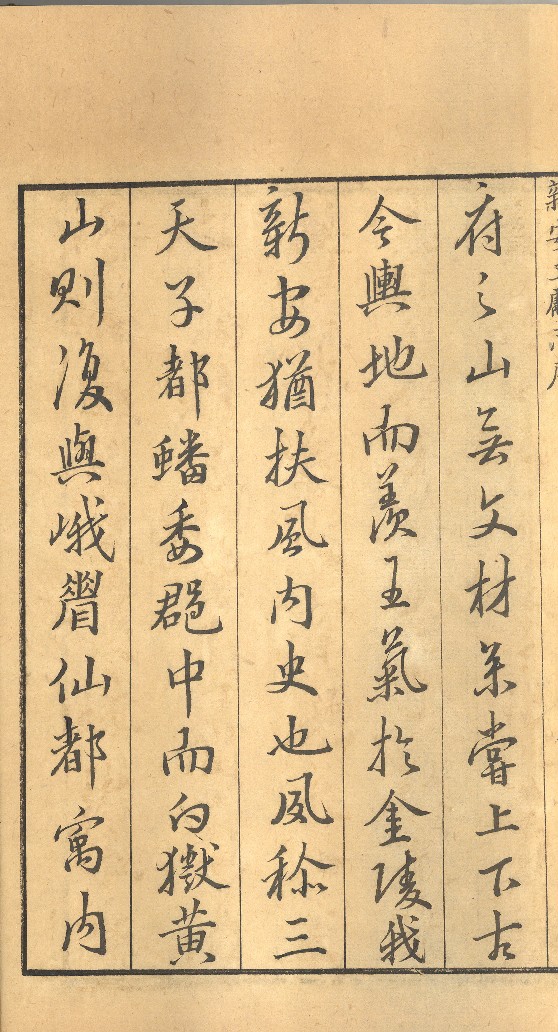 府之山無文材余嘗上下古
今輿地而羨王氣於金陵我
新安猶扶風內史也夙稱三
天子都蟠委郡中而白嶽黃
山則復與峨眉仙都寓內